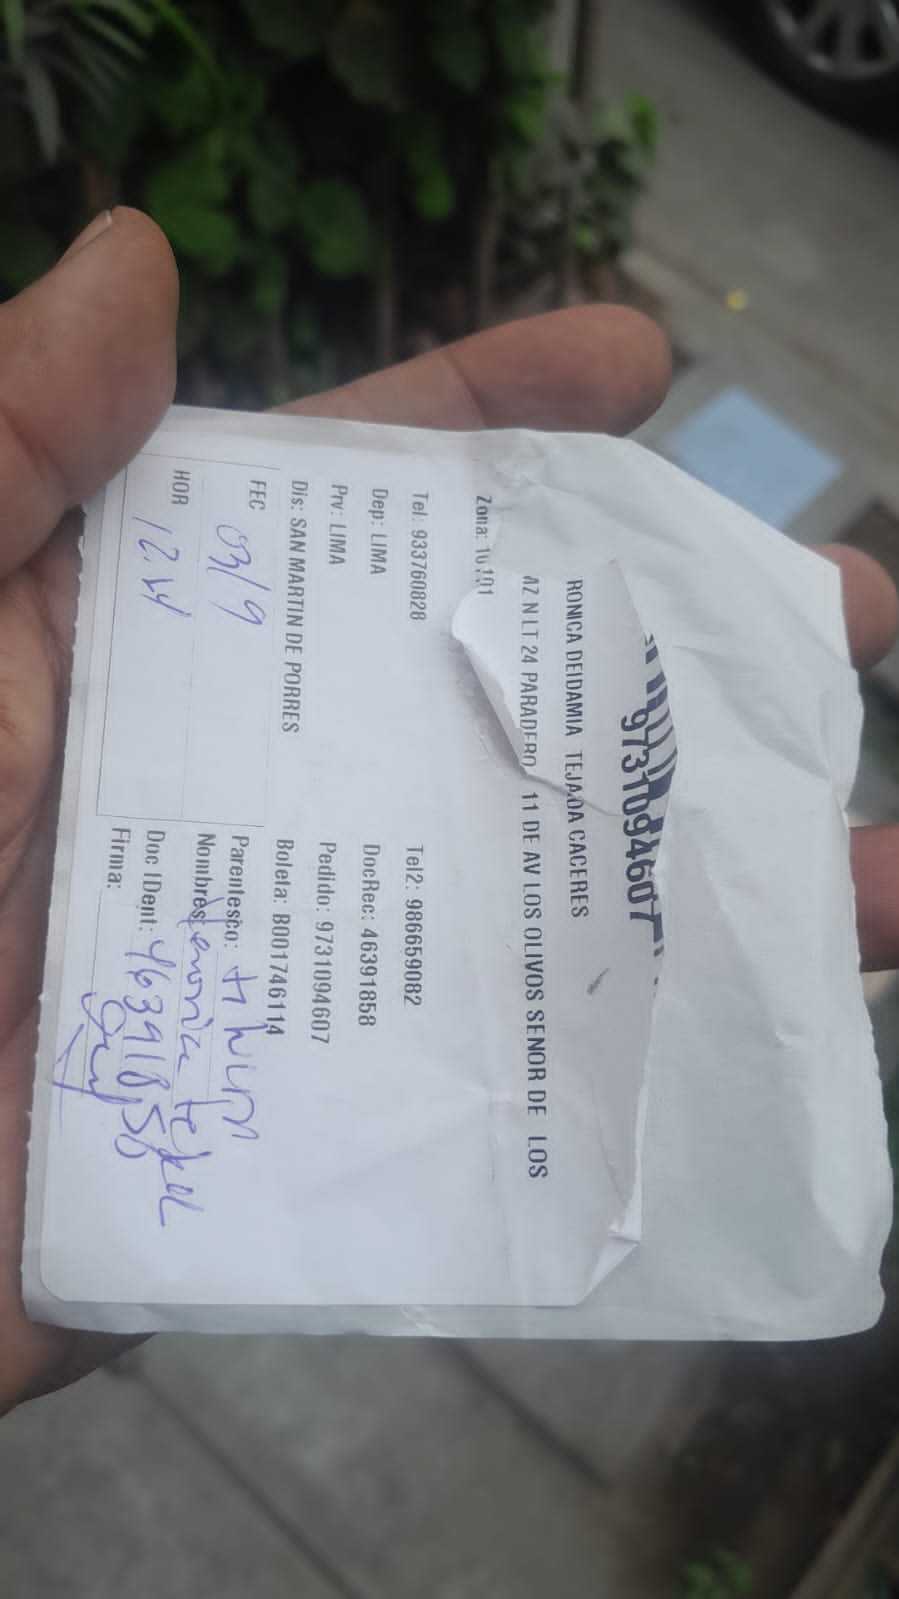 9731094607
RONICA DEIDAMIA TEJADA CACERES
MZ N LT 24 PARADERO 11 DE AV LOS OLIVOS SENOR DE LOS
Zona: 10101
Tel: 933760828 Tel2: 986659082
Dep: LIMA DocRec: 46391858
Prv: LIMA Pedido: 9731094607
Dis: SAN MARTIN DE PORRES Boleta: B001746114
FEC 03/9 Parentesco:
HOR 12:44 Nombres:
Doc IDent: 46391858
Firma: